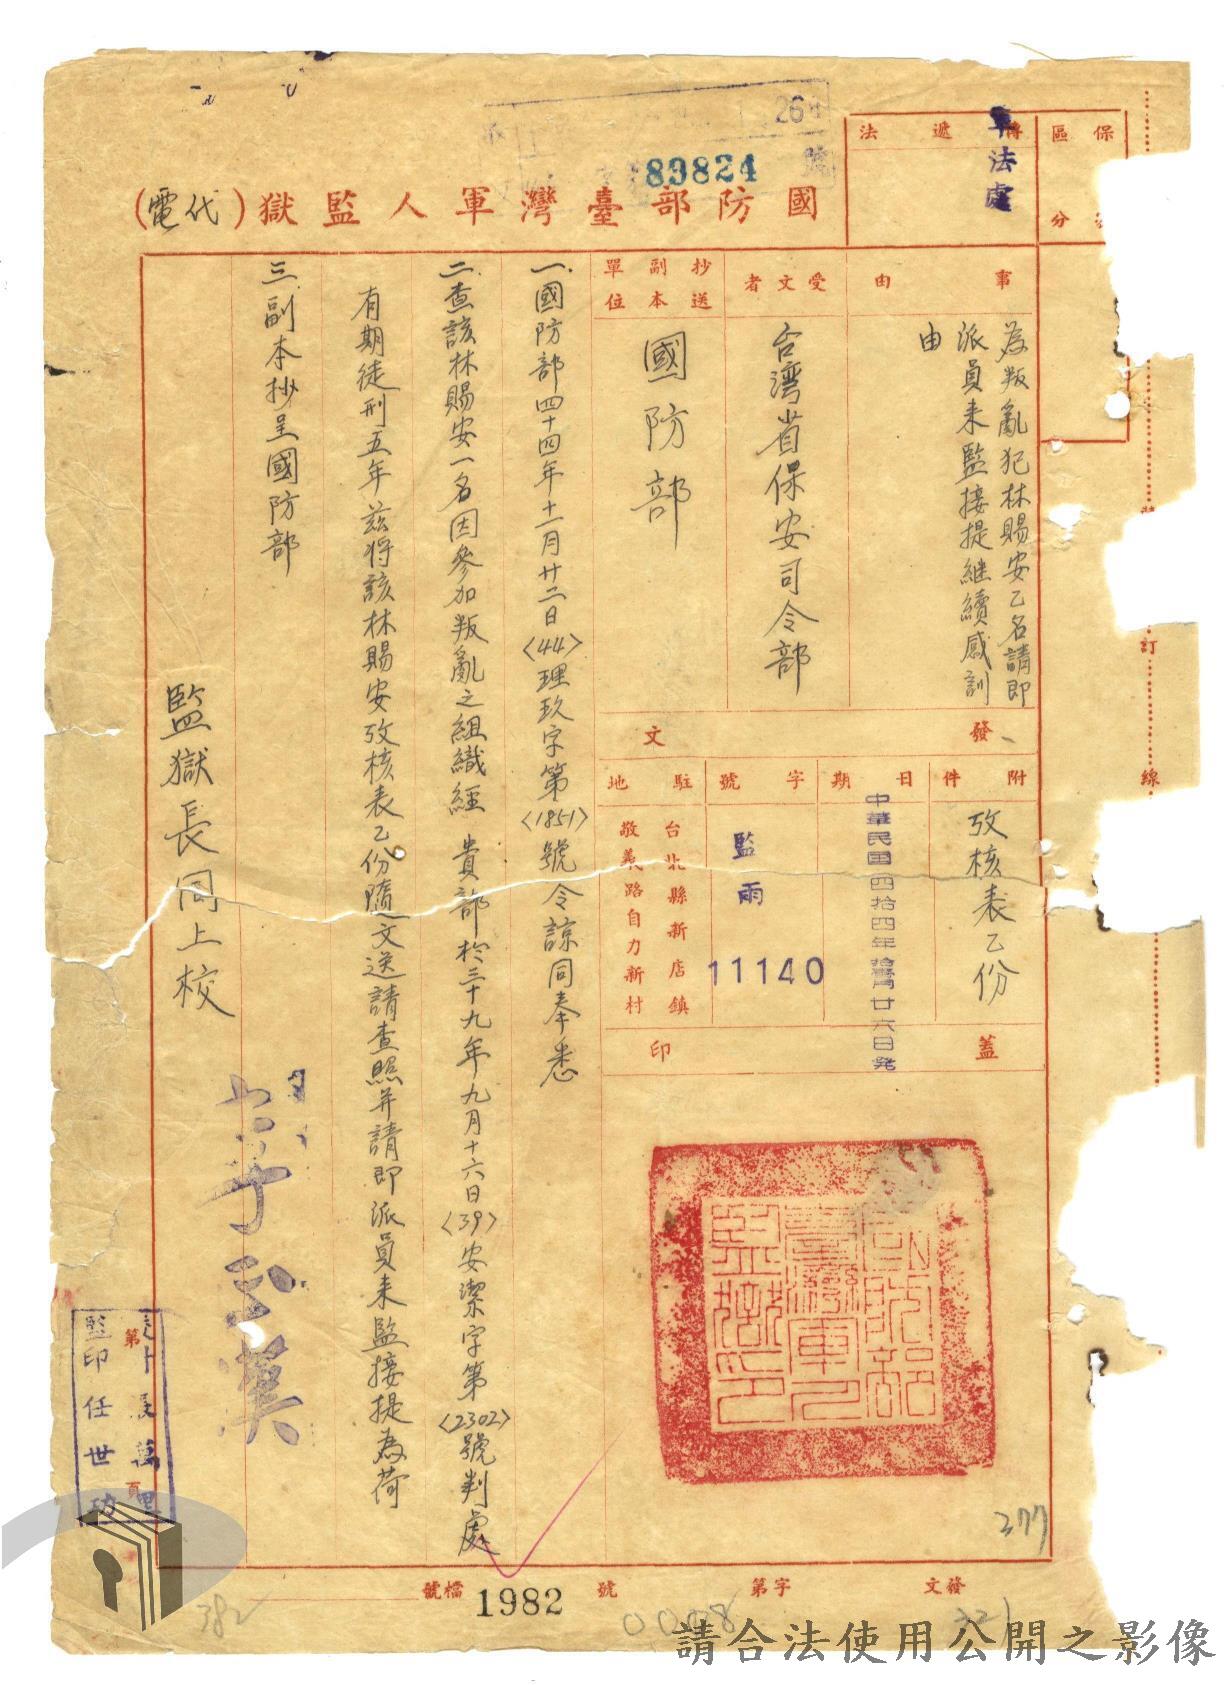 保區
傳遞法
軍法處
89824
國防部臺灣軍人監獄(代電)
事由
為叛亂犯林賜安乙名請即
派員來監接提繼續感訓
由
受文者
台灣省保安司令部
抄送副本單位
國防部
發文
附件
攷核表乙份
日期
中華民國四拾四年拾壹月廿六日発
字號
監雨
11140
駐地
台北縣新店鎮
敬義路自力新村
蓋印
一.國防部四十四年十一月廿二日〈44〉理玖字第〈1851〉號令諒同奉悉
二.查該林賜安一名因參加叛亂之組織經 貴部於三十九年九月十六日〈39〉安潔字第〈2302〉號判處
有期徒刑五年茲將該林賜安攷核表乙份隨文送請查照并請即派員來監接提為荷
三.副本抄呈國防部
監獄長同上校
國防部臺灣軍人監獄印
監印任世功
第
頁
訂
線
377
發文
字第
號
檔號
1982
382
321
請合法使用公開之影像